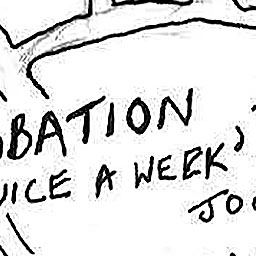 OBATION
WICE A WEEK'
JO